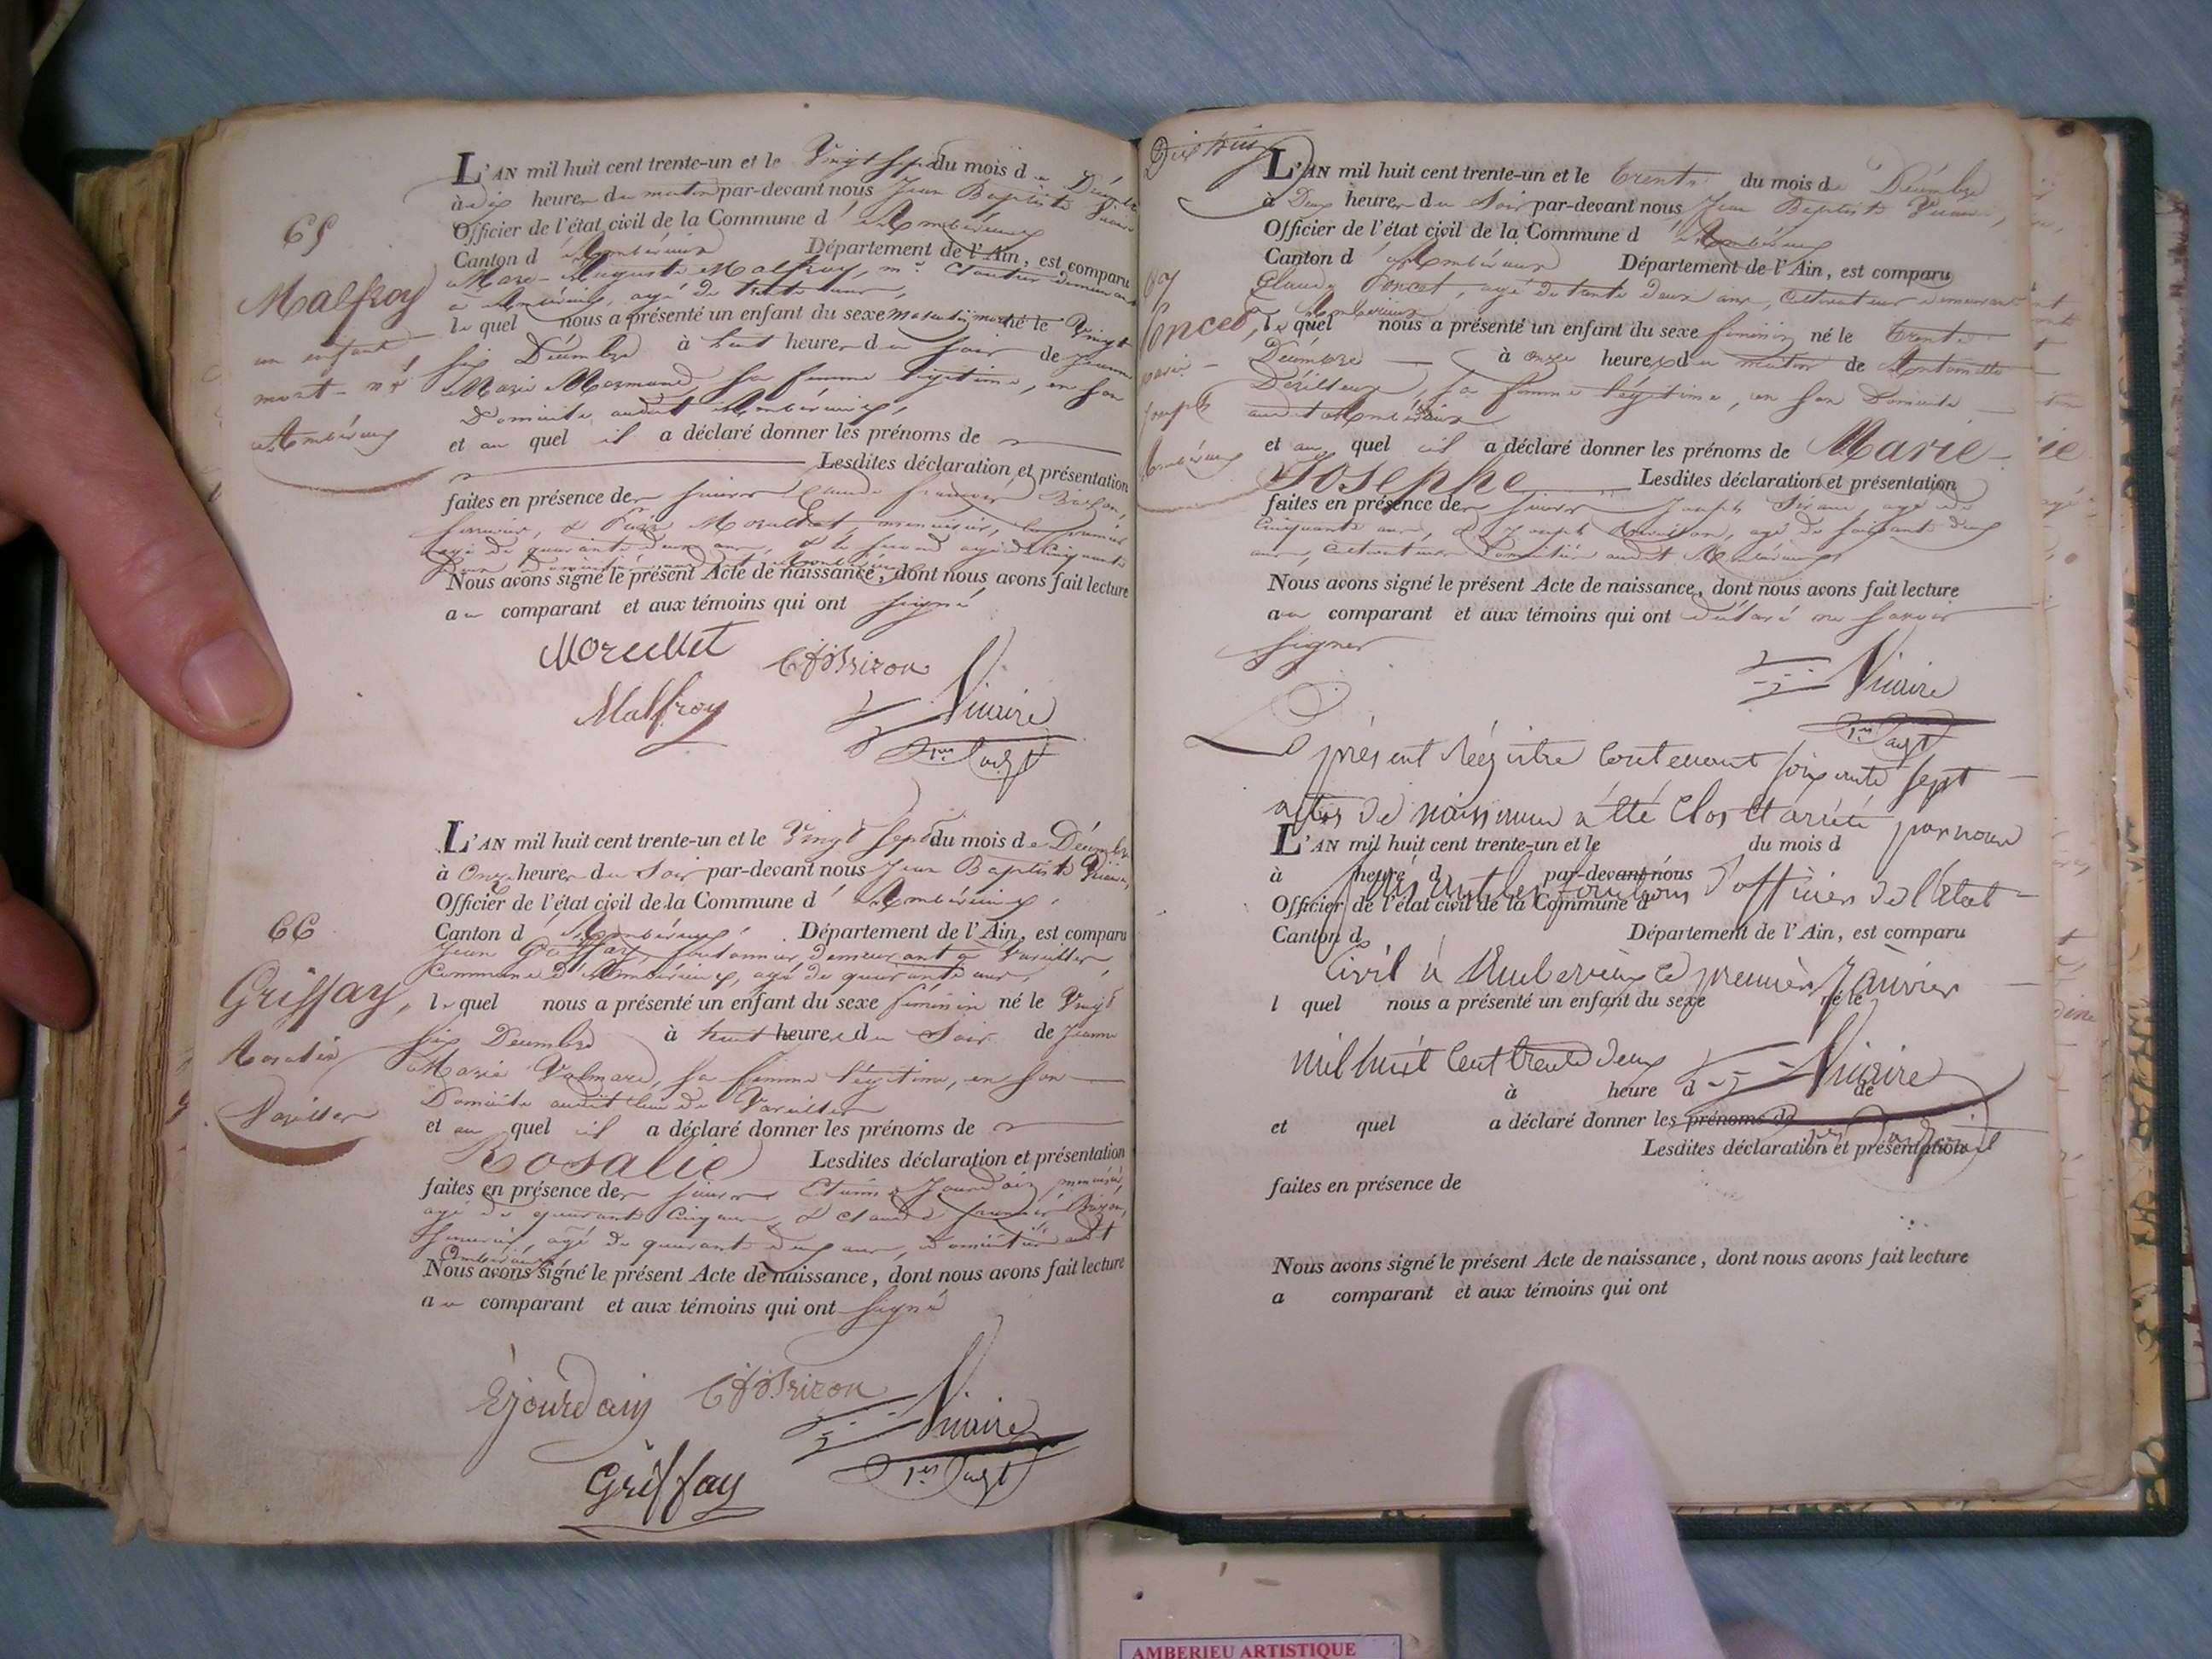 65
Malfroy
un enfant
mort-né
Ambérieux
L'AN mil huit cent trente-un et le Vingt sept du mois de Décembre
à dix heures du matin par-devant nous Jean Baptiste Vicaire
Officier de l'état civil de la Commune d'Ambérieux
Canton d'Ambérieux Département de l'Ain, est comparu
Marc-Auguste Malfroy, md. Cloutier demeurant
à Ambérieux, agé de trente ans,
lequel nous a présenté un enfant du sexe masculin mort né le Vingt
six Décembre à huit heures du soir de Jeanne
Marie Mermand, sa femme légitime, en son
Domicile audit Ambérieux,
et au quel il a déclaré donner les prénoms de
Lesdites déclaration et présentation
faites en présence des sieurs Claude François Brizon,
serrurier, & Morellet, menuisier, le premier
agé de quarante deux ans, & le second agé de Cinquante
Nous avons signé le présent Acte de naissance, dont nous avons fait lecture
au comparant et aux témoins qui ont signé
Morellet CfBrizon
Malfroy Vicaire
1er adjt
66
Griffay,
Rosalie
Vareilles
L'AN mil huit cent trente-un et le Vingt sept du mois de Décembre
à Onze heures du Soir par-devant nous Jean Baptiste Vicaire,
Officier de l'état civil de la Commune d'Ambérieux,
Canton d'Ambérieux Département de l'Ain, est comparu
Jean Griffay, demeurant à Vareilles
Commune d'Ambérieux, agé de quarante ans,
lequel nous a présenté un enfant du sexe féminin né le Vingt
six Décembre à huit heures du Soir de Jeanne
Marie Valmard, sa femme légitime, en son
Domicile audit lieu de Vareilles
et au quel il a déclaré donner les prénoms de
Rosalie Lesdites déclaration et présentation
faites en présence des sieurs Etienne Jourdain, menuisier,
agé de quarante Cinq ans, & Claude François Brizon,
serrurier, agé de quarante deux ans, domiciliés audit
Ambérieux
Nous avons signé le présent Acte de naissance, dont nous avons fait lecture
au comparant et aux témoins qui ont signé
Ejourdain CfBrizon Vicaire
Griffay 1er adjt
Dix huit
67
Poncet,
Marie
Josephe
Ambérieux
L'AN mil huit cent trente-un et le trente du mois de Décembre
à Deux heures du Soir par-devant nous Jean Baptiste Vicaire,
Officier de l'état civil de la Commune d'Ambérieux
Canton d'Ambérieux Département de l'Ain, est comparu
Claude Poncet, agé de trente deux ans, Cultivateur demeurant
à Ambérieux
lequel nous a présenté un enfant du sexe féminin né le trente
Décembre à onze heures du matin de Antoinette
sa femme légitime, en son Domicile
audit Ambérieux
et au quel il a déclaré donner les prénoms de Marie-
Josephe Lesdites déclaration et présentation
faites en présence des sieurs Joseph agé de
Cinquante ans, & Joseph agé de soixante deux
ans, Cultivateurs Domiciliés audit Ambérieux,
Nous avons signé le présent Acte de naissance, dont nous avons fait lecture
au comparant et aux témoins qui ont déclaré ne savoir
signer
Vicaire
1er adjt
Le présent Régistre Contenant soixante sept
actes de naissance a été Clos et arrété par nous
L'AN mil huit cent trente-un et le du mois d
à heure d par-devant nous
faisant les fonctions d'officier de l'état
Officier de l'état civil de la Commune d
Canton d Département de l'Ain, est comparu
Civil à Ambérieux le premier Janvier
l quel nous a présenté un enfant du sexe né le
mil huit Cent trente deux Vicaire
à heure d de
et quel a déclaré donner les prénoms de
Lesdites déclaration et présentation
faites en présence de
Nous avons signé le présent Acte de naissance, dont nous avons fait lecture
a comparant et aux témoins qui ont
AMBERIEU ARTISTIQUE